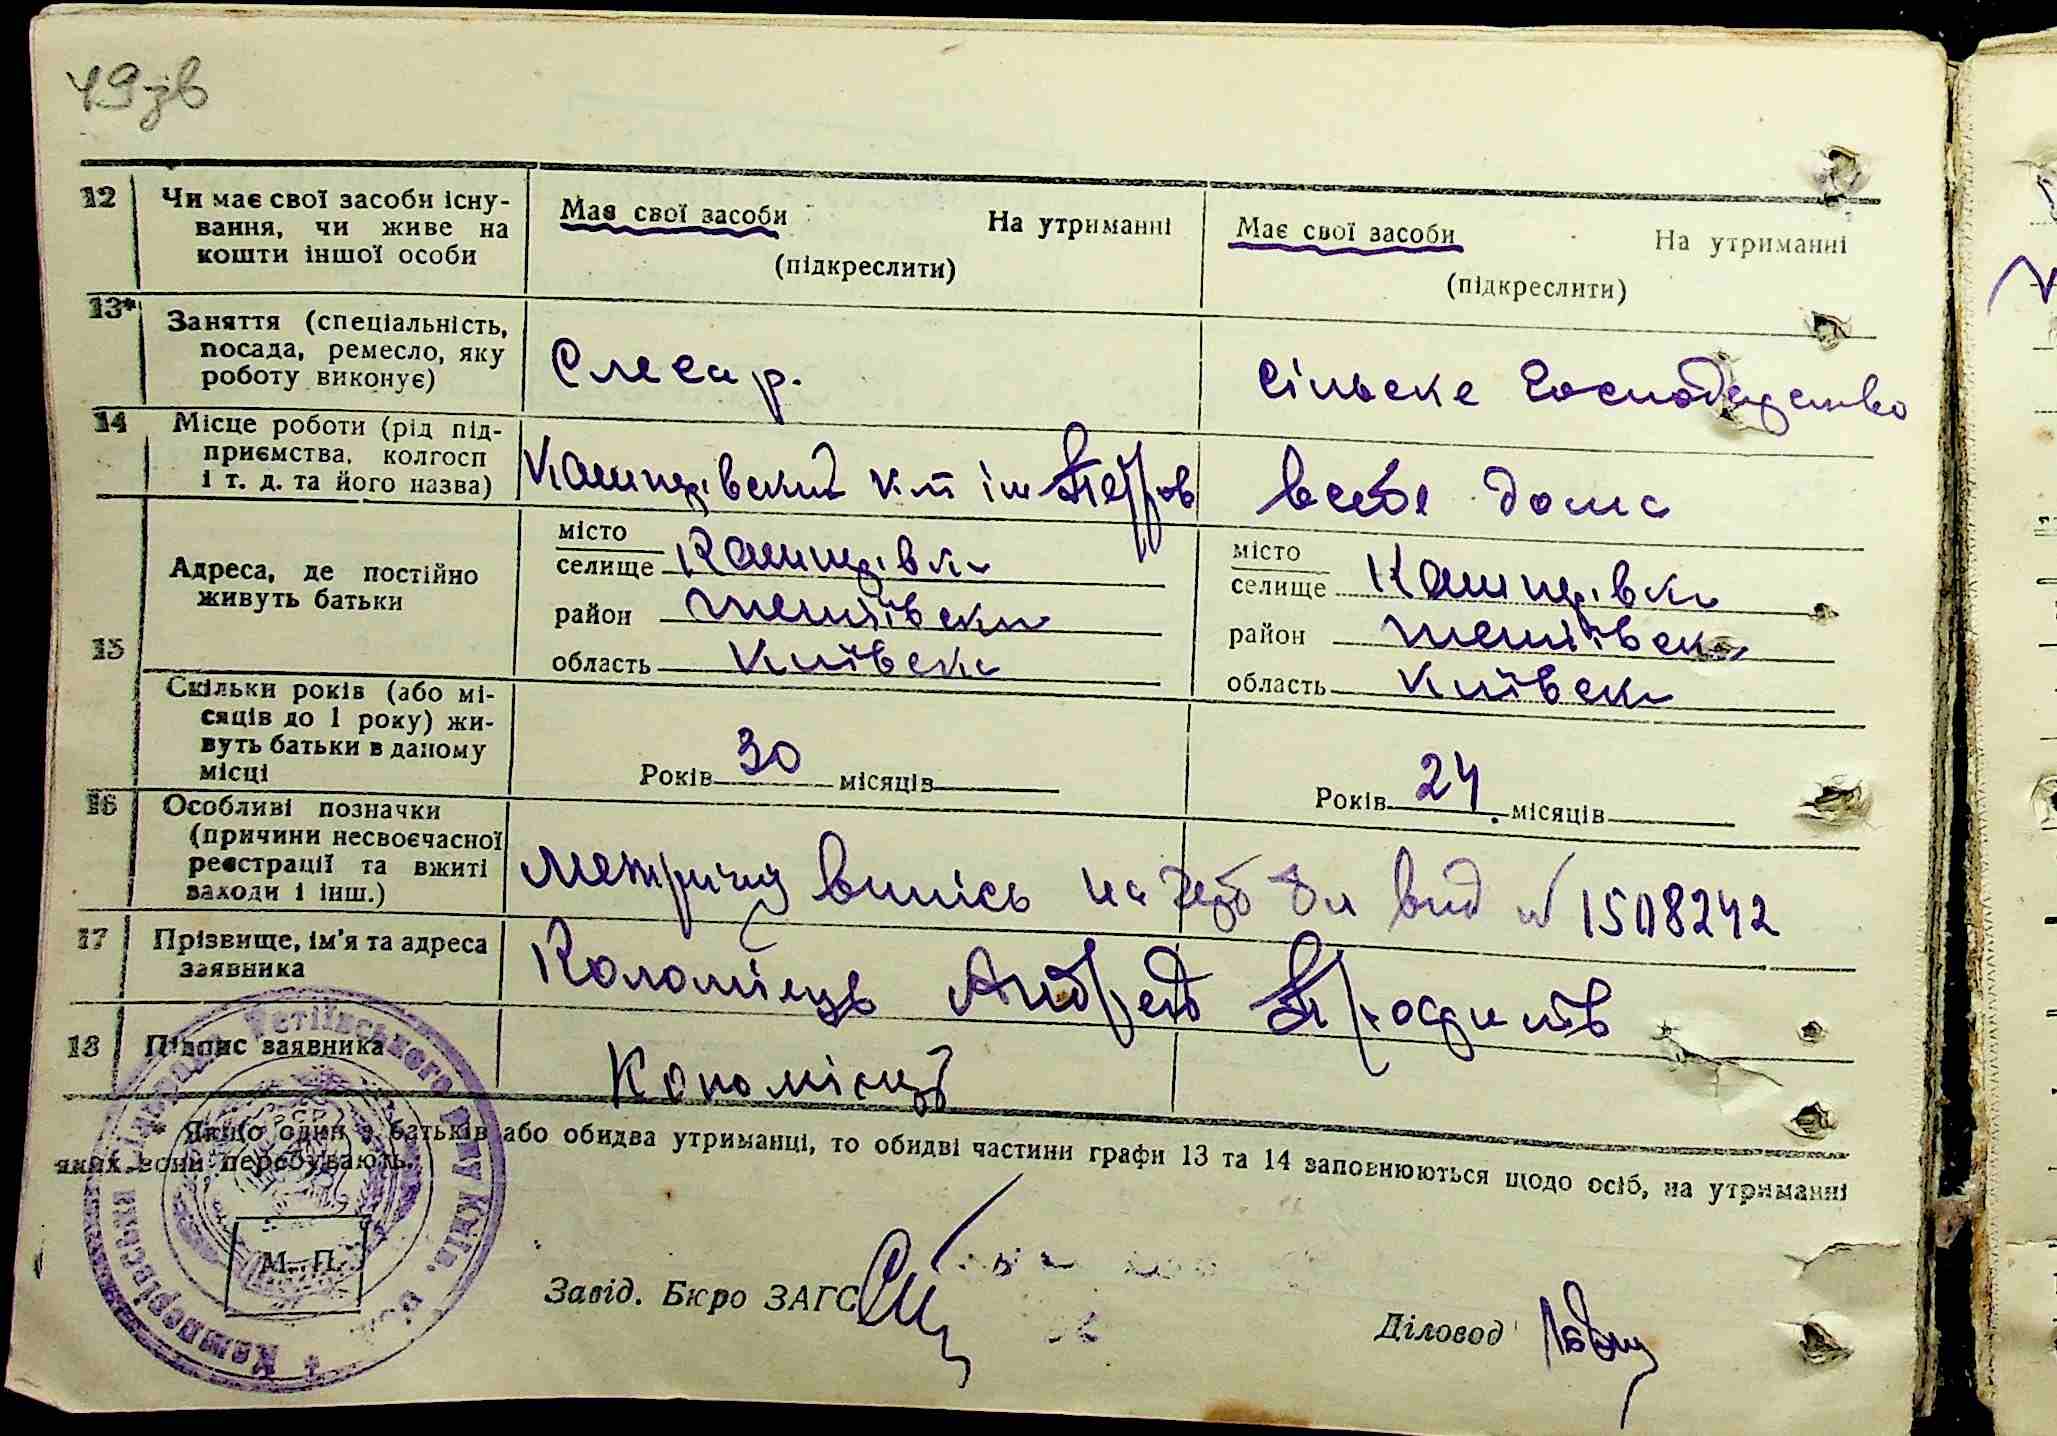 49зв
12 Чи має свої засоби існу-
вання, чи живе на
кошти іншої особи
Має свої засоби На утриманні
(підкреслити)
Має свої засоби На утриманні
(підкреслити)
13* Заняття (спеціальність,
посада, ремесло, яку
роботу виконує)
Слесар.
Сільске Господарство
14 Місце роботи (рід під-
приємства, колгосп
і т. д. та його назва)
в себе дома
15 Адреса, де постійно
живуть батьки
місто
селище Кашперівка
район тетіївски
область Київска
місто
селище Кашперівка
район тетіївски
область Київска
Скільки років (або мі-
сяців до 1 року) жи-
вуть батьки в даному
місці
Років 30 місяців
Років 24 місяців
16 Особливі позначки
(причини несвоєчасної
реєстрації та вжиті
заходи і інш.)
метричну випись на № 1508242
17 Прізвище, ім'я та адреса
заявника
Коломієць Андрей
18 Підпис заявника
Коломієць
Якщо один з батьків або обидва утриманці, то обидві частини графи 13 та 14 заповнюються щодо осіб, на утриманні
яких вони перебувають.
М. П.
Завід. Бюро ЗАГС
Діловод